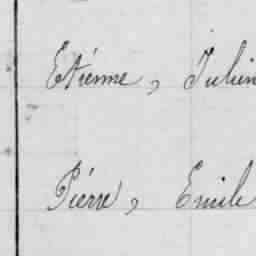 Etiénne, Julien
Piérre, Emile